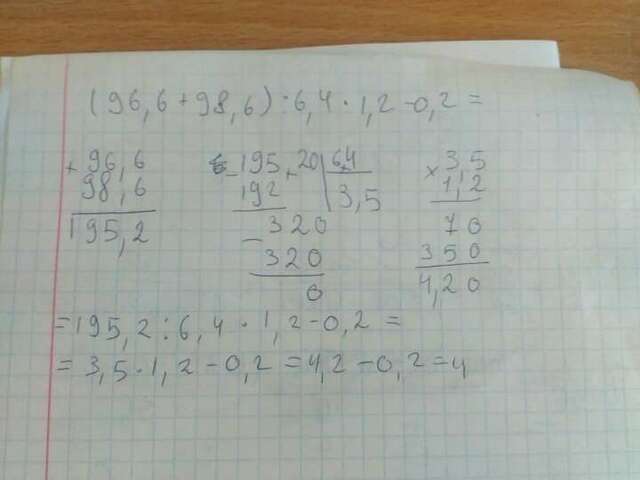 (96,6 + 98,6) : 6,4 · 1,2 - 0,2 =
+ 96,6
98,6
195,2
- 195,20 | 6,4
192 | 3,5
- 320
320
0
× 3,5
1,2
70
350
4,20
= 195,2 : 6,4 · 1,2 - 0,2 =
= 3,5 · 1,2 - 0,2 = 4,2 - 0,2 = 4